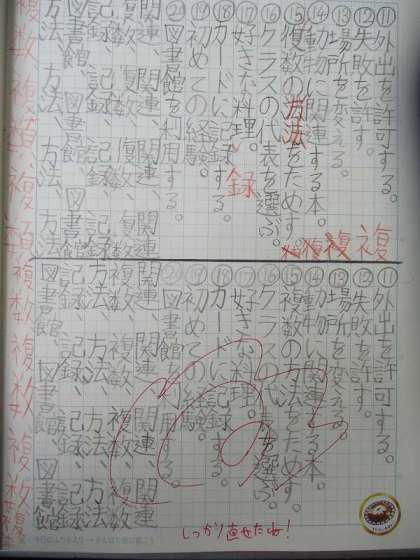 ⑪外出を許可する。
⑫失敗を許す。
⑬場所を変える。
⑭動物に関連する本。
⑮複数の方法をためす。
⑯クラスの代表を選ぶ。
⑰好きな料理。
⑱カードに記録する。
録
⑲初めての経験。
⑳図書館を利用する。
関連、関連、関連
複数、複数、複数
記録、記録、記録
図書館、図書館、図書館
方法、方法、方法
複
複
⑪外出を許可する。
⑫失敗を許す。
⑬場所を変える。
⑭動物に関連する本。
⑮複数の方法をためす。
⑯クラスの代表を選ぶ。
⑰好きな料理。
⑱カードに記録する。
⑲初めての経験。
⑳図書館を利用する。
関連、関連、関連
複数、複数、複数
方法、方法、方法
記録、記録、記録
図書館、図書館、図書館
複数 複数 複数
しっかり直せたね!